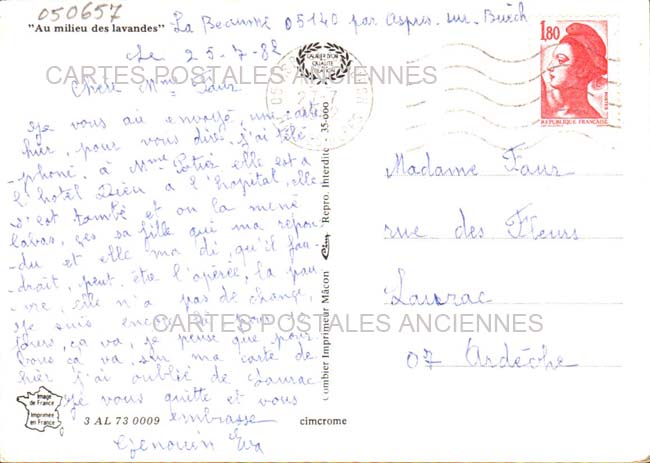 050657
"Au milieu des lavandes"
La Beaume 05140 par Aspres-sur-Buëch
Le 25-7-82
CARTES POSTALES ANCIENNES
Chère Mme Faur
je vous au envoyé, une carte
hier, pour vous dire, j'ai télé
-phoné, à Mme elle est a
l'hotel Dieu a l'hopital, elle
s'est tombé et on la mené
labas, ses sa fille qui ma répon-
-du et elle ma di, qu'il fau-
-drait, peut, être l'opérée, la pau
-vre, elle n'a pas de chance,
je suis encore ici pour
jours, ça va, je pense que, pour
Vous ça va, sur ma carte de
hier j'ai oublié de Laurac
je vous quitte et vous
embrasse
Eva
CARTES POSTALES ANCIENNES
Image
de France
Imprimée
en France
3 AL 73 0009
cimcrome
Combier Imprimeur Mâcon Cim Repro. Interdite - 35-000
LABEL D'OR
QUALITE
1,80
POSTES
REPUBLIQUE FRANÇAISE
Madame Faur
rue des Fleurs
Laurac
07 Ardèche